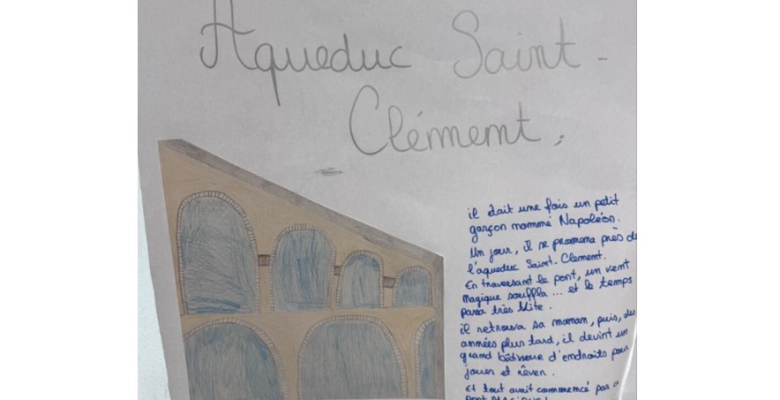 Aqueduc Saint-
Clément.
il était une fois un petit
garçon nommé Napoléon.
Un jour, il se promena près de
l'aqueduc Saint-Clement.
En traversant le pont, un vent
magique souffla ... et le temps
passa très Vite.
il retrouva sa maman, puis, des
années plus tard, il devint un
grand bâtisseur d'endroits pour
jouer et rêver.
Et tout avait commencé par